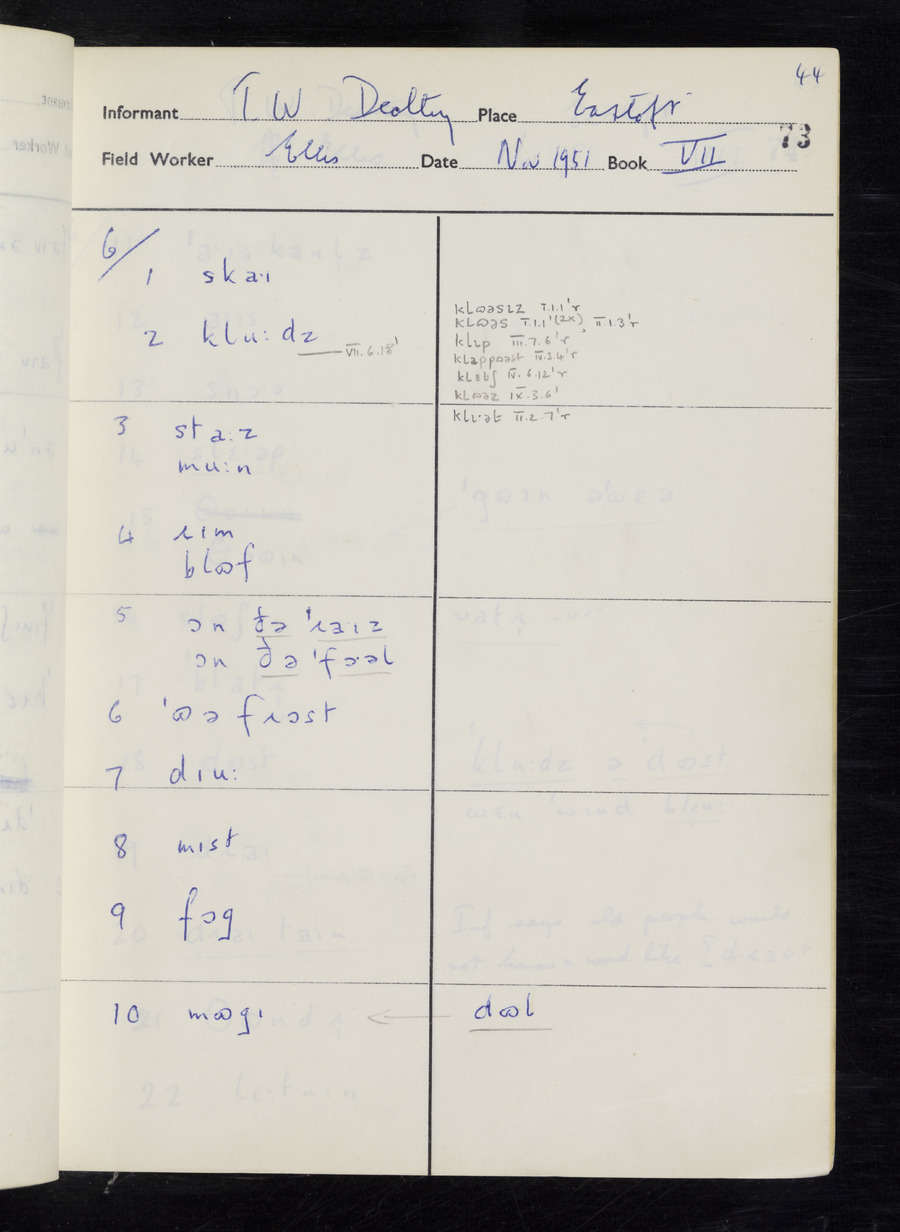 44
Informant T W Dealtry Place Eastoft
73
Field Worker Ellis Date Nov 1951 Book VII
6/
1 skaɪ
2 klu:dz
VII.6.18'
klʊəsɪz I.1.1'r
klʊəs I.1.1'(2x), II.1.3'r
klɪp III.7.6'r
klappʊəst IV.3.4'r
klɛtʃ IV.6.12'r
klʊəz IX.3.6'
klɪ·ət II.2.7'r
3 sta:z
mu:n
4 ɹɪm
blʊf
5 ɔn ðə 'ɹaɪz
ɔn ðə 'fɔəl
6 'ʊə fɹɔst
7 dɪu:
8 mɪst
9 fɔg
10 mʊgɪ ← dʊl